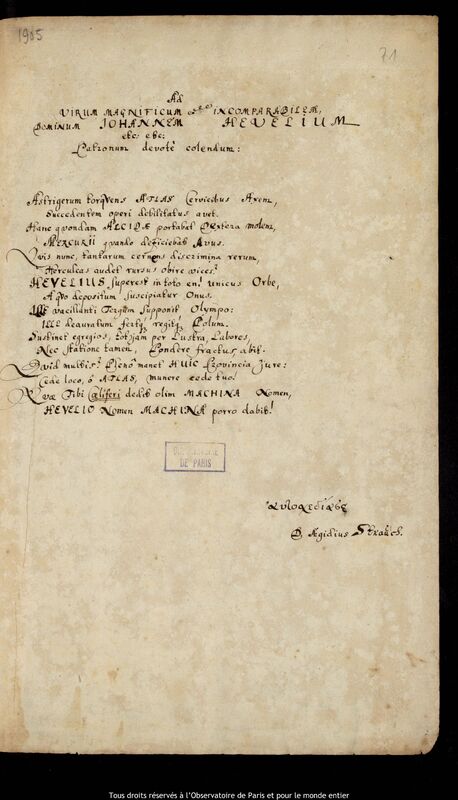 1905
71
Ad
VIRUM MAGNIFICUM INCOMPARABILEM,
DOMINUM IOHANNEM HEVELIUM
etc: etc:
Patronum devotè colendum:
Astrigerum torqvens ATLAS Cervicibus Axem,
Succedentem operi debilitatus avet.
Hanc qvondam ALCIDÆ portabat Dextera molem,
MERCURII qvando deficiebat Avus.
Qvis nunc, tantarum cernens discrimina rerum,
Herculeas audet rursus obire vices?
HEVELIUS superest in toto en! unicus Orbe,
A qvo depositum suscipiatur Onus.
Ille vacillanti Tergum supponit Olympo:
ILLE deauratum fertq; regitq; Polum.
Sustinet egregios, totjam per Lustra, Labores,
Nec statione tamen, Pondere fractus, abit.
Qvid multis? Plenò manet HUIC Provincia Jure:
Cede loco, ô ATLAS, munere cede tuo!
Qvæ Tibi Cæliferi dedit olim MACHINA Nomen,
HEVELIO Nomen MACHINA porro dabit!
OBSERVATOIRE
DE PARIS
D. Ægidius Strauch.
Tous droits réservés à l'Observatoire de Paris et pour le monde entier